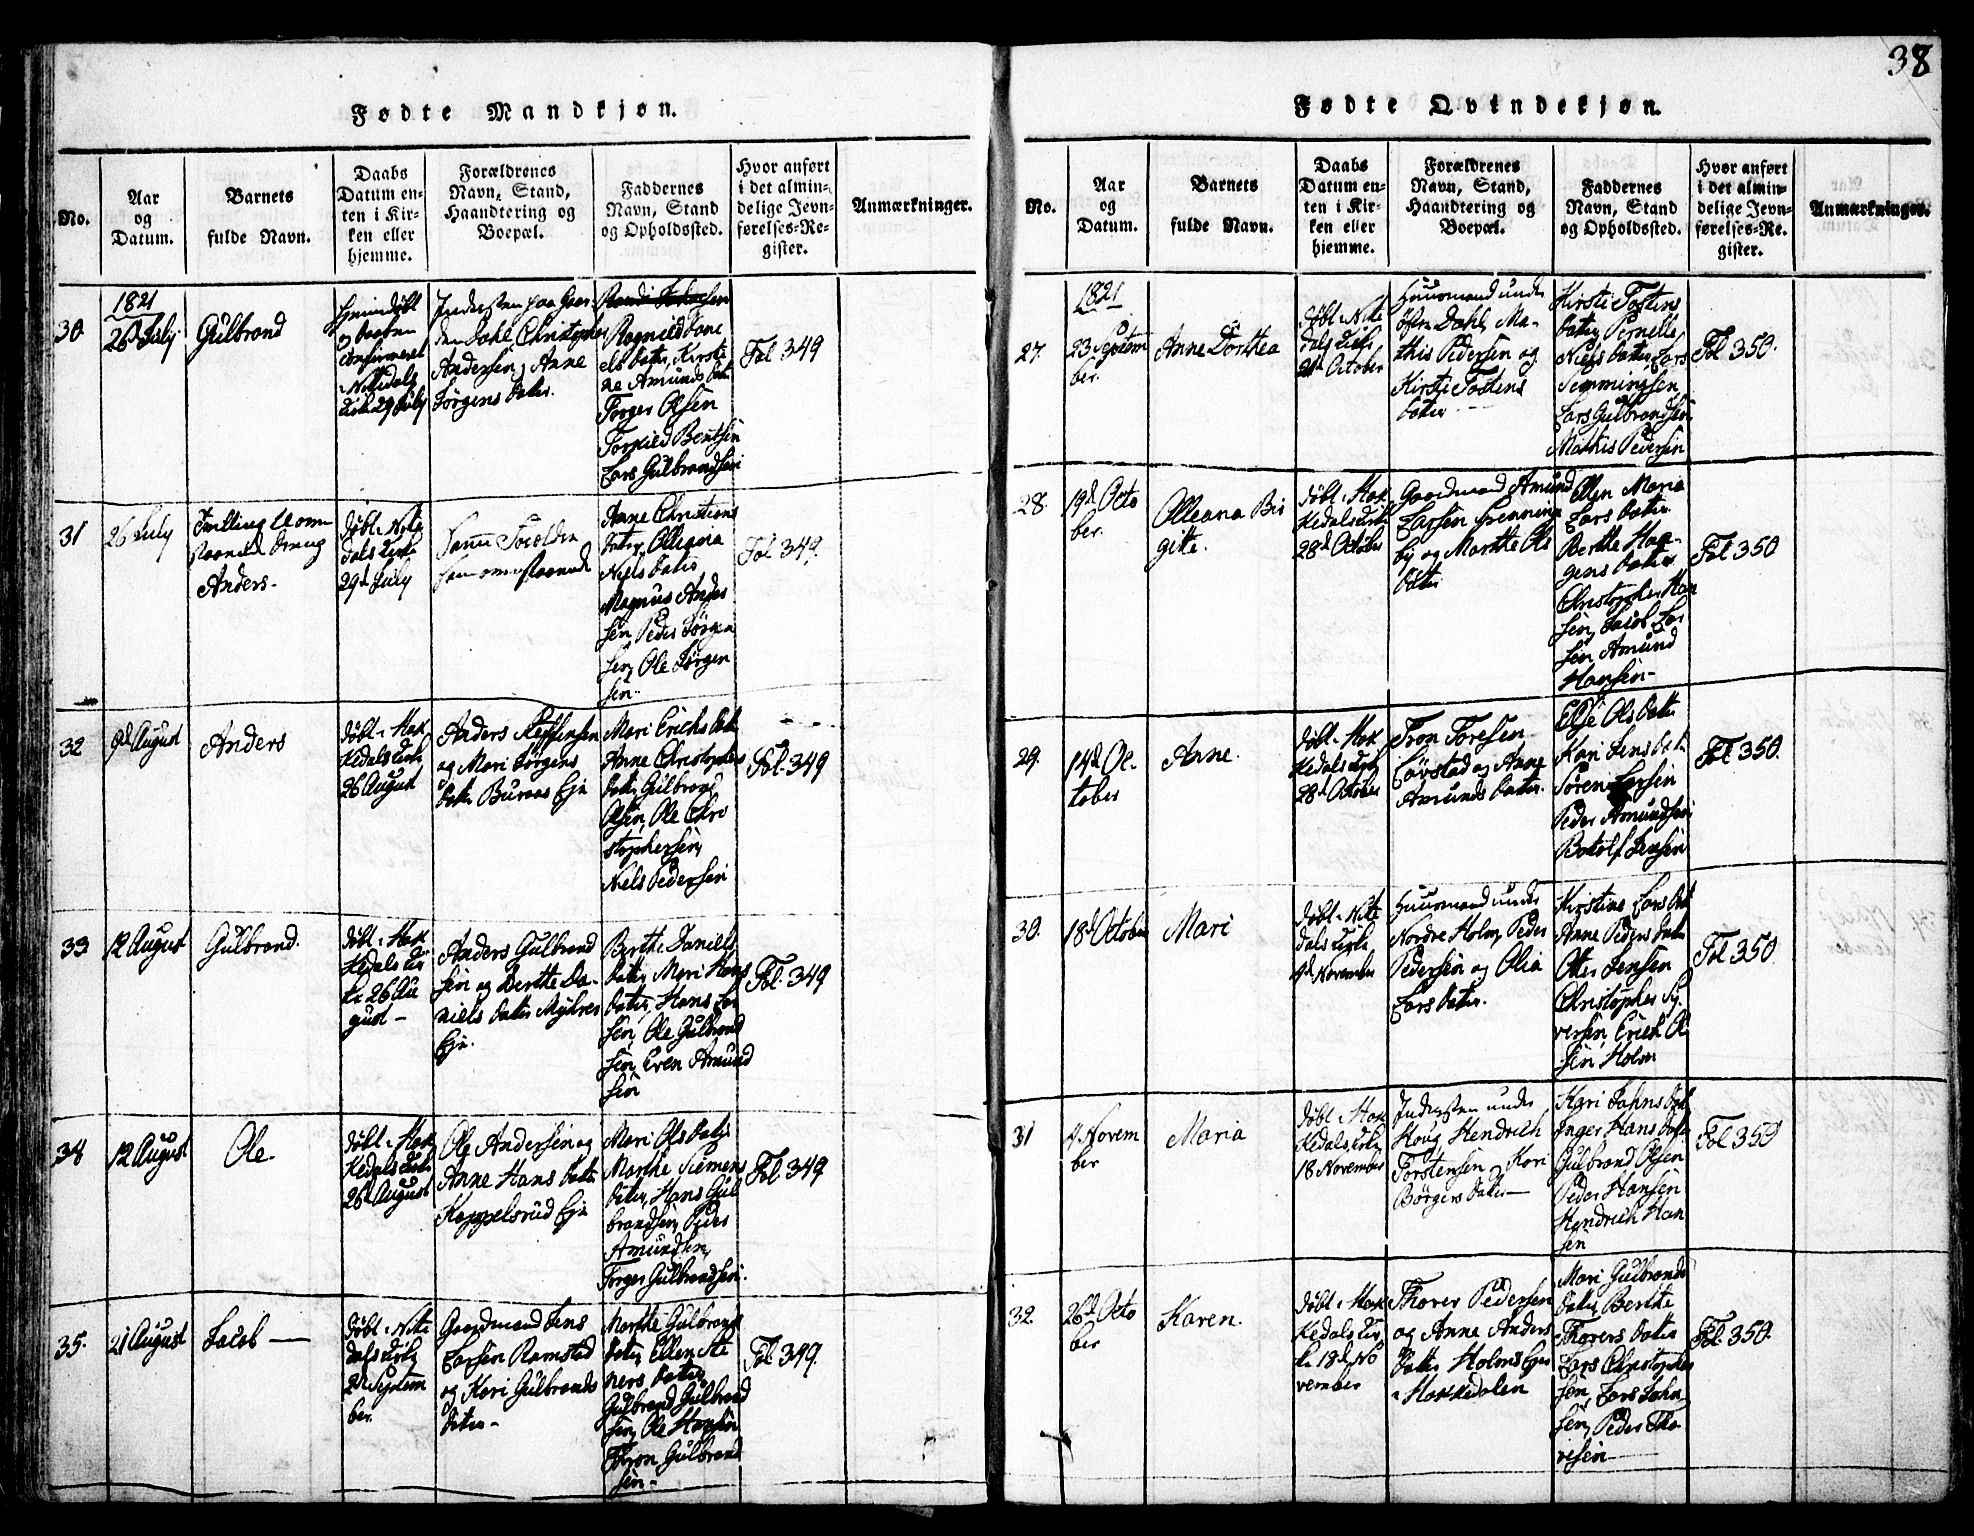 38
Fødte Mandkjøn.
No.
Aar
og
Datum.
Barnets
fulde Navn.
Daabs
Datum en-
ten i Kir-
ken eller
hjemme.
Forældrenes
Navn, Stand,
Haandtering og
Boepæl.
Faddernes
Navn, Stand
og Opholdssted.
Hvor anført
i det almin-
delige Jevn-
førelses-Re-
gister.
Anmærkninger.
30.
1821
26d July
Gulbrand
hjemmdøbt
og daaben
confirmeret
Nittedals
Kirke 29 July
Inderster paa Gaar-
den Dahl Christopher
Andersen, Anne
Jørgens datter.
Ragnild Dani
els datter, Kirsti
ne Amunds dat
Torger Olsen
Torkild Bentsen
Lars Gulbrandsen
Fol 349
31
26 July
Tvilling
Anders.
døbt i Nitte
dals Kirke
29d July
Samme Forældre
som ovenstaaende
Anne Christians
datter, Olleana
Niels datter
Magnus Anders
sen, Peder Jørgen
sen, Ole Jørgen
sen.
Fol 349.
32
9d August
Anders
døbt i Hak
kedals Kirke
26 August
Anders Steffensen
og Mari Jørgens
datter Buraas Eje
Mari Erichs dat
Anne Christophers
datter, Gulbrand
Olsen, Ole Chri
stophersen,
Niels Pedersen
Fol. 349
33
12 August
Gulbrand.
døbt i Hak
kedals Kir
ke 26 Au
gust -
Anders Gulbrand
sen og Berthe Da-
niels datter Myhres
Eje.
Berthe Daniels
datter, Mari Hans
datter, Hans Lar
sen, Ole Gulbrand
sen, Even Amund
sen
Fol. 349
34
12 August
Ole.
døbt i Hak
kedals Kirke
26d August
Ole Andersen og
Anne Hans datter
Kappelsrud Eje
Mari Ols datter
Marthe Siemens
datter, Hans Gul
brandsen, Peder
Amundsen,
Torger Gulbrandsen.
Fol. 349
35.
21 August
Jacob —
døbt i Nitte
dals Kirke
2d Septem
ber.
Gaardmand Jens
Larsen Ramstad
og Kari Gulbrands
datter -
Marthe Gulbrands
datter, Ellen Ste
ners datter,
Gulbrand Gulbrand
sen, Ole Hansen
Thron Gulbrand
sen -
Fol. 349.
Fødte Qvindekjøn.
No.
Aar
og
Datum.
Barnets
fulde Navn.
Daabs
Datum en-
ten i Kir-
ken eller
hjemme.
Forældrenes
Navn, Stand,
Haandtering og
Boepæl.
Faddernes
Navn, Stand
og Opholdssted.
Hvor anført
i det almin-
delige Jevn-
førelses-Re-
gister.
Anmærkninger.
27.
1821
23 Septem
ber.
Anne Dorthea
døbt i Nitte
dals Kirke,
21d October
Huusmand under
Østre Dahl, Ma-
this Pedersen og
Kirsti Tostens
datter
Kirsti Tostens
datter, Pernelle
Niels datter, Lars
Semmingsen
Lars Gulbrandsen
Mathis Pedersen
Fol 350.
28.
19d Octo
ber.
Olleana Bir
gitte.
døbt i Hak
kedals Kirke
28d October
Gaardmand Amund
Larsen Grønning
by og Marthe Ols
datter
Ellen Maria
Lars datter
Berthe Haa-
gens datter
Christopher Han
sen, Jacob Lar
sen Amund
Hansen -
Fol 350
29.
14d Oc-
tober
Anne.
døbt i Hak
kedals Kirke
28d October
Tron Toresen
Løvstad og Anne
Amunds datter.
Else Ols datter
Kari Jens dat
Søren Larsen
Peder Amundsen
Botolf Jensen
Fol 350.
30.
18d October
Mari
døbt i Nitte
dals Kirke,
4d November
Huusmand under
Nordre Holm, Peder
Pedersen og Olia
Lars datter.
Kirstine Lars dat
Anne Peders datter
Otter Jensen
Christopher Sy-
versen, Erich Ol
sen Holm
Fol 350
31
4 Novem
ber
Maria
døbt i Hak
kedals Kirke
18 November
Inderster under
Houg Hendrich
Torstensen, Kari
Børgers datter —
Kari Jahns dat
Inger Hans datter
Gulbrand Olsen
Peder Hansen
Hendrich Han
sen
Fol 350
32.
26d Octo
ber
Karen.
døbt i Hak
kedals Kir
ke 18d No
vember
Thorer Pedersen
og Anne Anders
datter Holms Eje
i Hakkedalen
Mari Gulbrands
datter, Berthe
Thorers datter
Lars Christopher
sen, Lars Jahn
sen, Peder Tho
resen
Fol. 350.